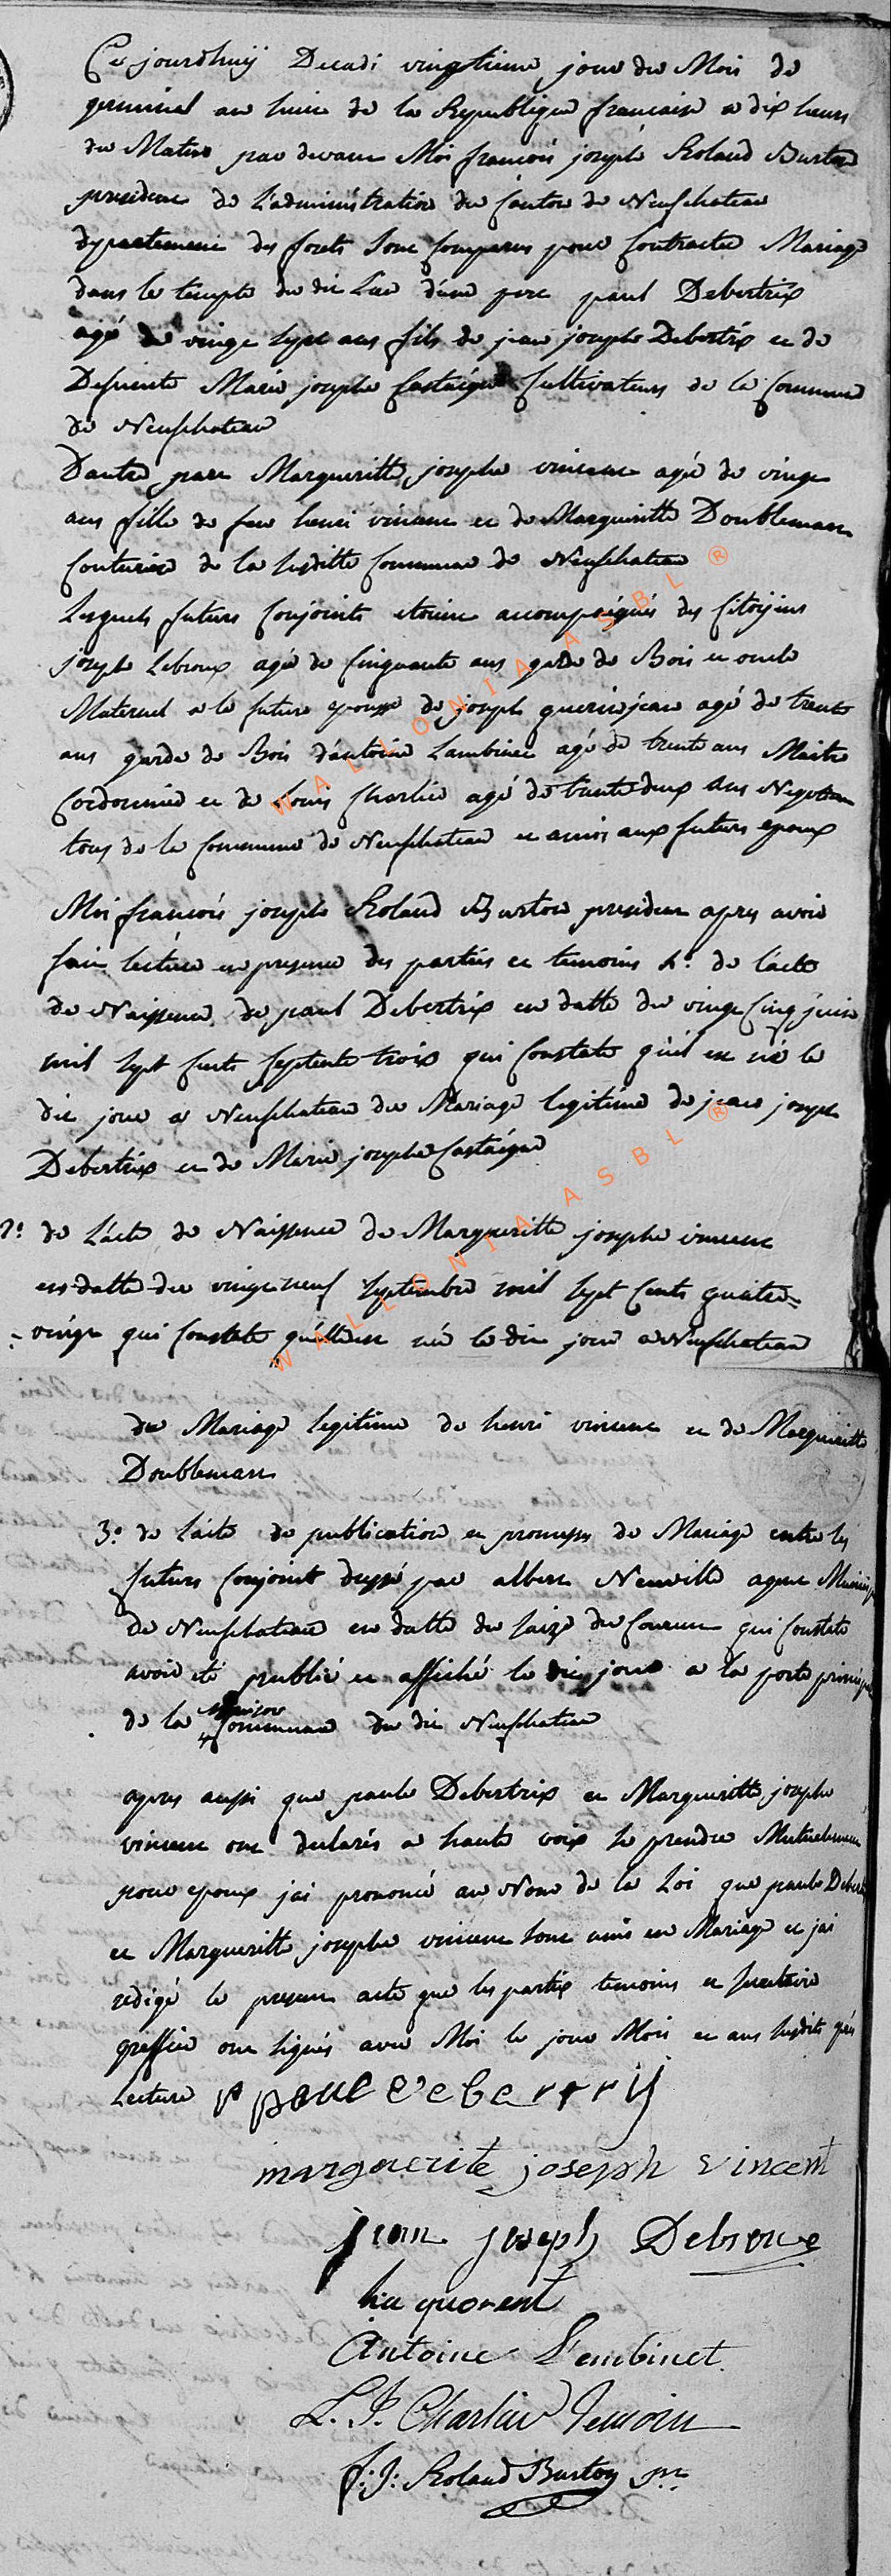 Ce jourdhuy Decadi vingtieme jour du Mois de
germinal an huit de la Republique francaise a dix heures
du Matin par devant Moi francois joseph Roland Burton
president de L'administration du Canton de Neufchateau
departement des forets Sont Comparus pour Contracter Mariage
dans le temple du dit Lieu d'une part paul Debertrix
agé de vingt sept ans fils de jean joseph Debertrix et de
Defuncte Marie josephe Castaigne Cultivateurs de la Commune
de Neufchateau
Dautre part Margueritte josephe vincent agée de vingt
ans fille de feu henri vincent et de Margueritte Doublemant
Couturiere de la susditte Commune de Neufchateau
Lesquels futurs Conjoints etoient accompagnés des Citoyens
joseph Lebroux agé de Cinquante ans garde de Bois et oncle
Maternel a la future epouse de joseph guerinjean agé de trente
ans garde de Bois d'antoine Lambinet agé de trente ans Maitre
Cordonnier et de Louis Charlier agé de trente deux ans Negotiant
tous de la Commune de Neufchateau et amis aux futurs epoux
Moi francois joseph Roland Burton president apres avoir
fait lecture en presence des parties et temoins 1º. de l'acte
de Naissence de paul Debertrix en datte du vingt Cinq juin
mil sept Cents septente trois qui Constate qu'il est né le
dit jour a Neufchateau du Mariage legitime de jean joseph
Debertrix et de Marie josephe Castaigne
2º. de L'acte de Naissence de Margueritte josephe vincent
en datte du vingt neuf septembre mil sept Cents quatre=
=vingt qui Constate qu'elle est née le dit jour a Neufchateau
du Mariage legitime de henri vincent et de Margueritte
Doublemant
3º. de l'acte de publication en promesse de Mariage entre les
futurs Conjoint dressé par albert Neuville agent Municipal
de Neufchateau en datte du saize du Courant qui Constate
avoir eté publié et affiché le dit jour a la porte principale
de la Maison Commune du dit Neufchateau
apres aussi que paul Debertrix et Margueritte josephe
vincent ont declarés a haute voix se prendre Mutuellement
pour epoux jai prononcé au Nom de la Loi que paul Debertrix
et Margueritte josephe vincent sont unis en Mariage et jai
redigé le present acte que les partis temoins et secretaire
greffier ont signés avec Moi le jour Mois et ans susdits après
Lecture paul debertrij
marguerite joseph vincent
jean joseph Debroue
Antoine L'embinet
L. J. Charlier Temoin
f: J: Roland Burton
WALLONIA ASBL ®
WALLONIA ASBL ®